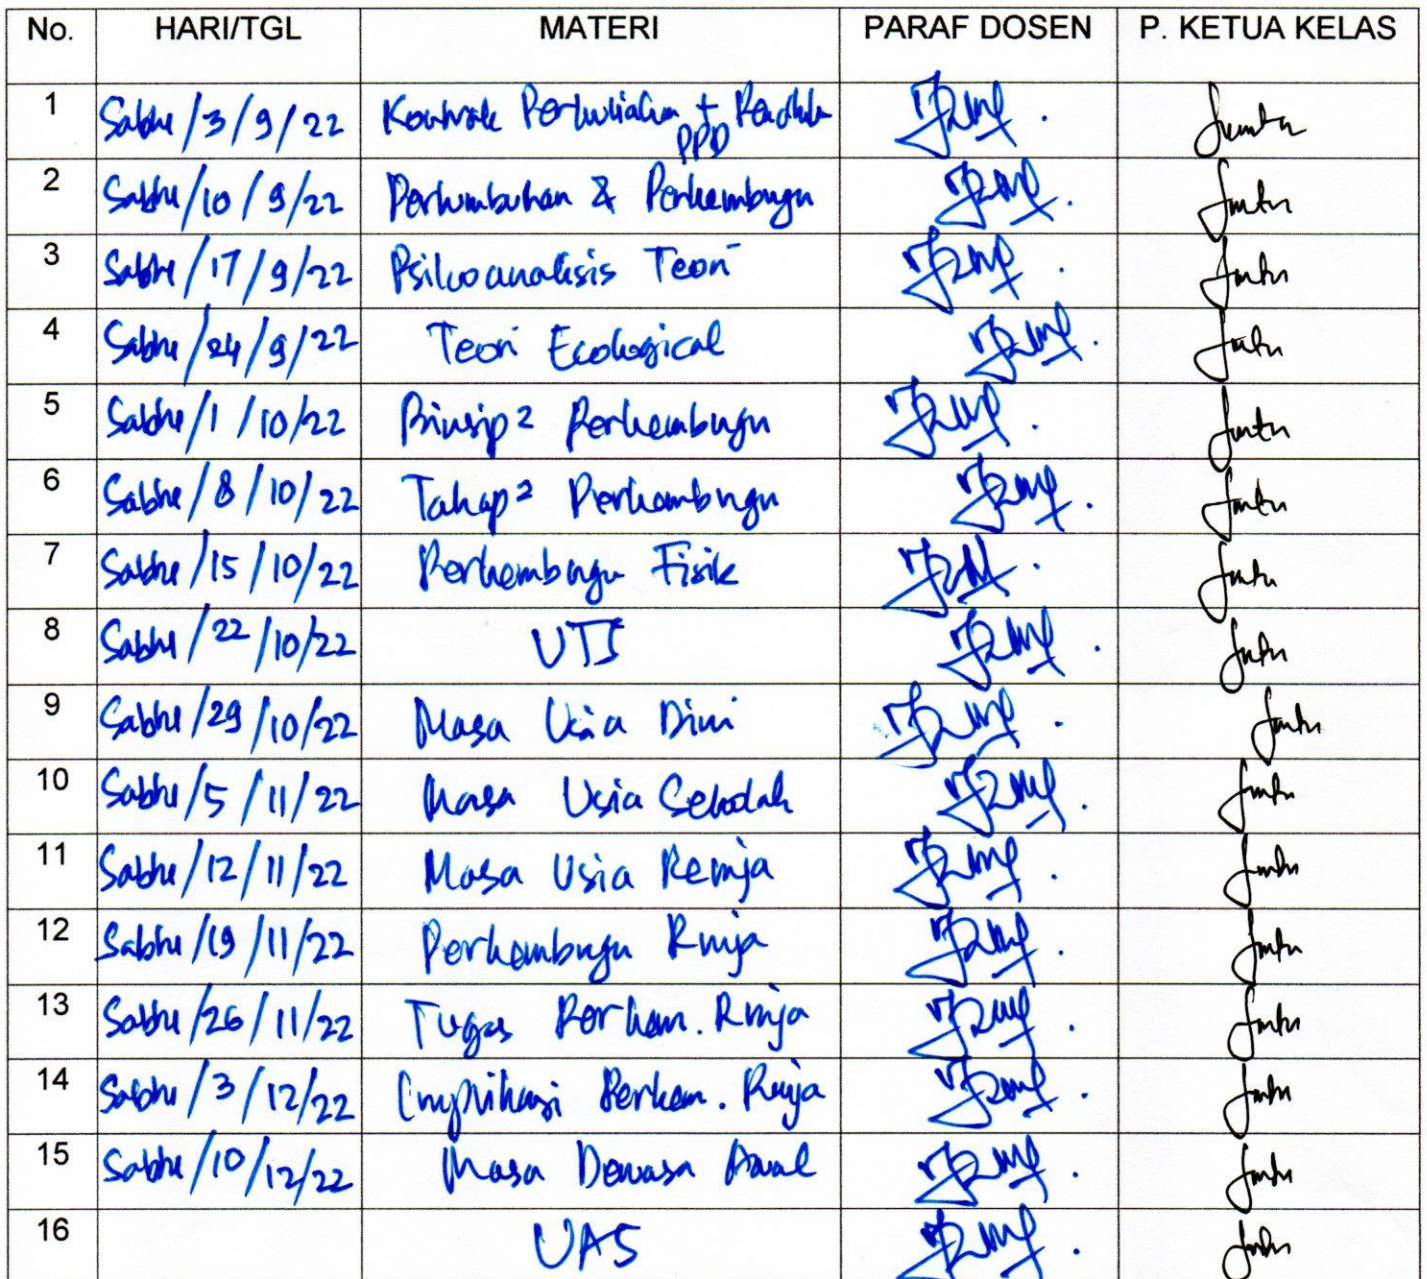 No. HARI/TGL MATERI PARAF DOSEN P. KETUA KELAS
1 Sabtu/3/9/22 Kontrak Perkuliahan +
PPD
2 Sabtu/10/9/22 Pertumbuhan & Perkembangn
3 Sabtu/17/9/22 Psikoanalisis Teori
4 Sabtu/24/9/22 Teori Ecological
5 Sabtu/1/10/22 Prinsip2 Perkembangn
6 Sabtu/8/10/22 Tahap2 Perkembangn
7 Sabtu/15/10/22 Perkembangn Fisik
8 Sabtu/22/10/22 UTS
9 Sabtu/29/10/22 Masa Usia Dini
10 Sabtu/5/11/22 Masa Usia Sekolah
11 Sabtu/12/11/22 Masa Usia Remja
12 Sabtu/19/11/22 Perkembangn Rmja
13 Sabtu/26/11/22 Tugas Perkem. Rmja
14 Sabtu/3/12/22 Implikasi Perkem. Rmja
15 Sabtu/10/12/22 Masa Dewasa Awal
16 UAS